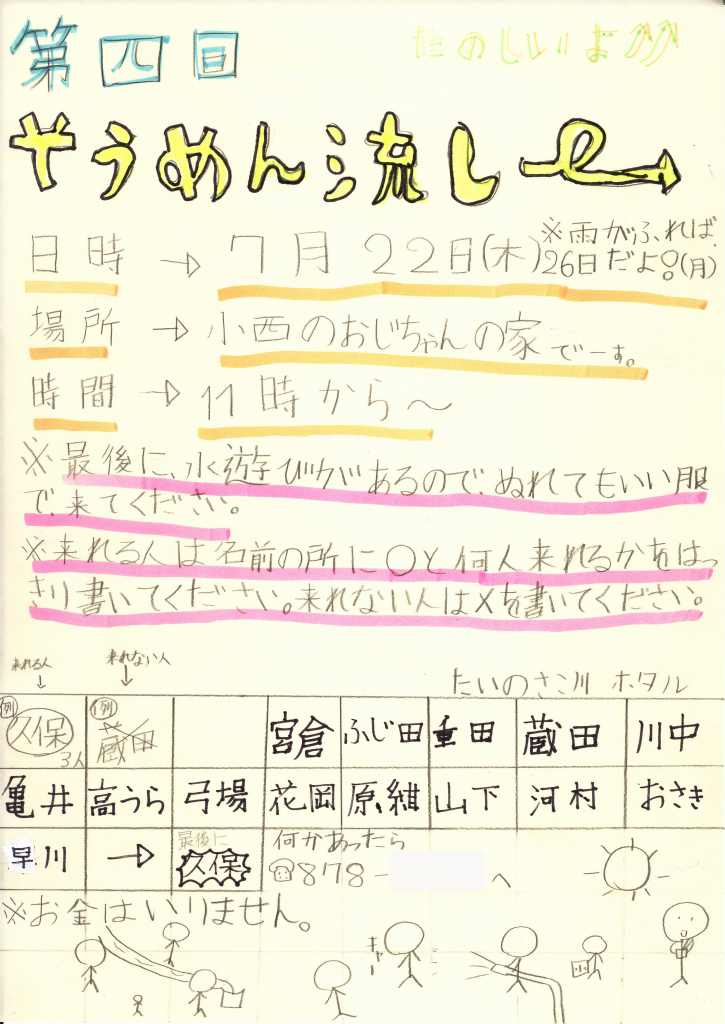 第四回
たのしいよ
そうめん流し
日時 → 7月 22日(木)
※雨がふれば、
26日だよ!!(月)
場所 → 小西のおじちゃんの家でーす。
時間 → 11時から〜
※最後に、水遊びがあるので、ぬれてもいい服
で、来てください。
※来れる人は名前の所に○と何人来れるかをはっ
きり書いてください。来れない人は×を書いてください。
来れる人 ↓
来れない人 ↓
たいのさこ川 ホタル
例 久保 3人
例 蔵田
宮倉 ふじ田 重田 蔵田 川中
亀井 高うら 弓場 花岡 原 紺 山下 河村 おさき
早川 → 最後に 久保
何かあったら
☎878- へ
※お金はいりません。
キャー